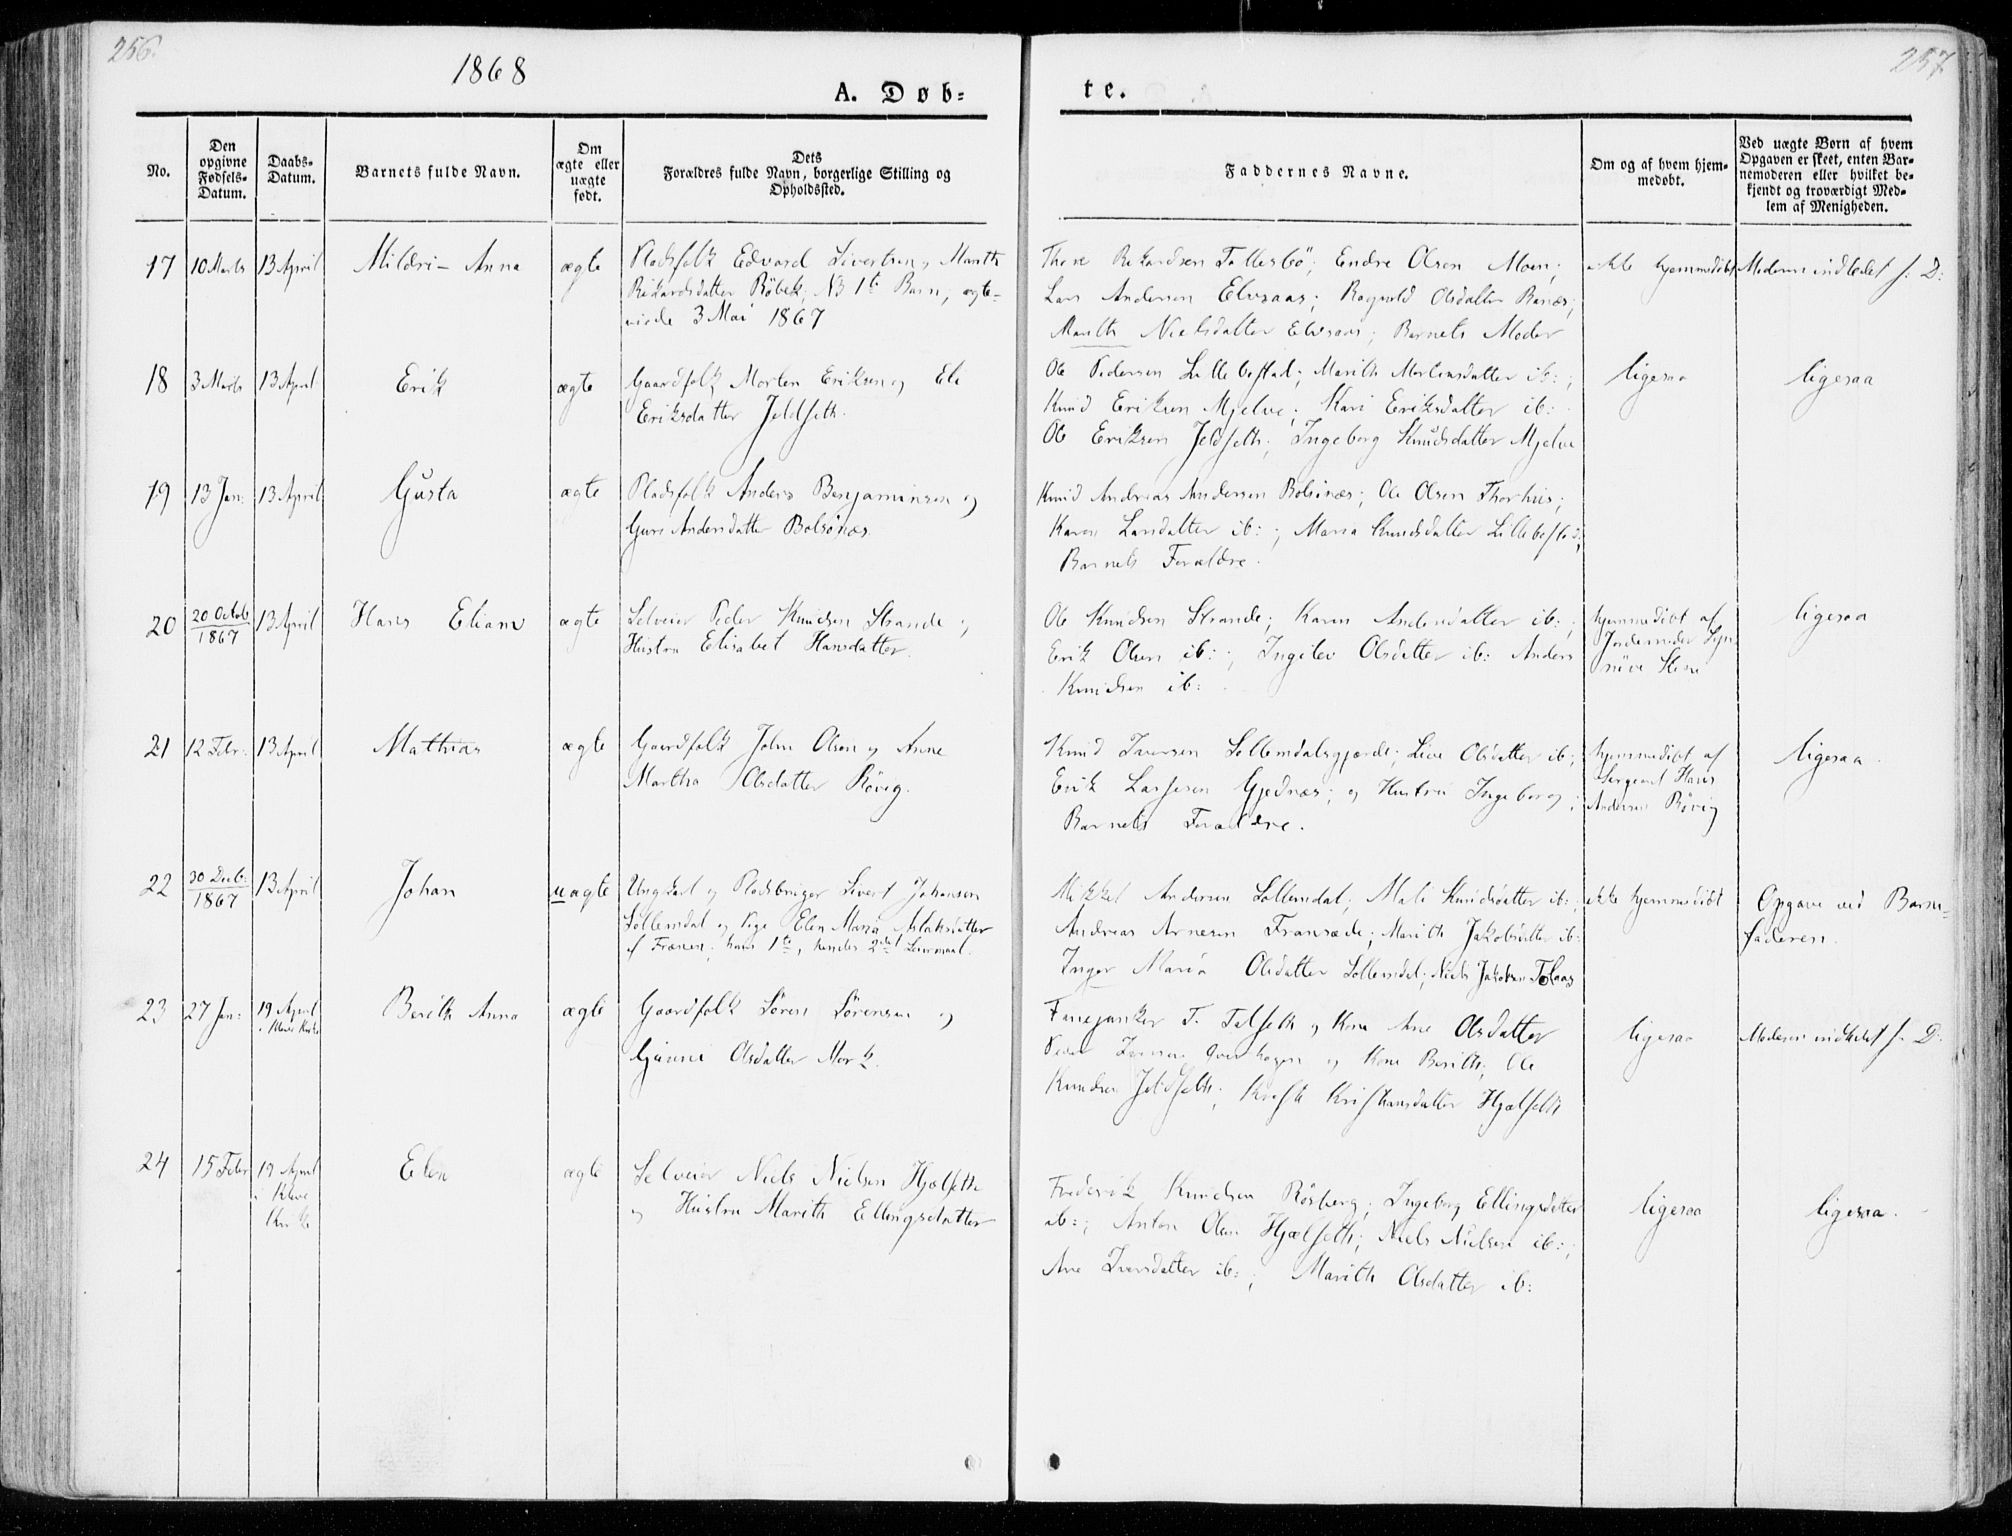 256.
257
1868
A. Døb=
te.
No.
Den opgivne Fødsels-Datum.
Daabs-Datum.
Barnets fulde Navn.
Om ægte eller uægte født.
Dets Forældres fulde Navn, borgerlige Stilling og Opholdssted.
Faddernes Navne.
Om og af hvem hjemmedøbt.
Ved uægte Børn af hvem Opgaven er skeet, enten Barnemoderen eller hvilket bekjendt og troværdigt Medlem af Menigheden.
17 10 Marts 13 April Mildri-Anna ægte
Pladsfolk Edvard Sivertsen og Marith
Rikardsdatter Røbek; NB 1te Barn, ægte-
viede 3 Mai 1867
Thore Rikardsen Tøllesbö; Endre Olsen Moen;
Lars Andersen Elvsaas; Ragnild Olsdatter
Marith Nielsdatter Elvsaas; Barnets Moder
ikke hjemmedöbt
Moderen indledet s. D:
18 3 Marts 13 April Erik ægte
Gaardfolk Morten Eriksen og Eli
Eriksdatter Jeldseth.
Ole Pedersen Lillebostad; Marith Mortensdatter ib:;
Knud Eriksen Mjelve; Kari Eriksdatter ib:
Ole Eriksen Jeldseth; Ingeborg Knudsdatter Mjelve
ligesaa
ligesaa
19 13 Jan: 13 April Gusta ægte
Pladsfolk Anders Benjaminsen og
Guri Andersdatter Bolsönæs.
Knud Andreas Andersen Bolsönæs; Ole Olsen Thorhus;
Karen Larsdatter ib:; Maria Knudsdatter
Barnets Forældre.
20 20 Octob 1867 13 April Hans Elian ægte
Selveier Peder Knudsen Strande og
Hustru Elisabet Hansdatter.
Ole Knudsen Strande; Karen Andersdatter ib:;
Erik Olsen ib:; Ingilev Olsdatter ib: Anders
Knudsen ib:
hjemmedöbt af
Jordemoder Syn-
növe
ligesaa
21 12 Febr: 13 April Mathias ægte
Gaardfolk John Olsen og Anne
Martha Olsdatter Røvig.
Knud Iversen Sollemdalsgjærde; Live Olsdatter ib;
Erik Lassesen Gjednæs; og Hustru Ingeborg;
Barnets Forældre.
hjemmedöbt af
Sergeant Hans
Andersen Røvig
ligesaa.
22 30 Decb: 1867 13 April Johan uægte
Ungkarl og Pladsbruger Sivert Johansen
Sollemdal og Pige Elen Maria Aslaksdatter
af Frænen; hans 1te, hendes 2det Leiermaal.
Mikkel Andersen Sollemdal; Mali Knudsdatter ib:;
Andreas Arnesen Fransæde; Marith Jakobsdatter ib:
Inger Maria Olsdatter Sollemdal; Niels Jakobsen Tolaas
ikke hjemmedöbt
Opgave ved Barne-
faderen.
23 27 Jan: 19 April i Kleve Kirke Berith Anna ægte
Gaardfolk Sören Sörensen og
Olsdatter Mork.
Fanejunker T. Talseth og Kone Ane Olsdatter
Peder Iversen og Kone Berith; Ole
Knudsen Jeldseth; Kristiansdatter Hjelseth
ligesaa
Moderen indledet s. D:
24 15 Febr 19 April i Kleve Kirke Elen ægte
Selveier Niels Nielsen Hjælseth
og Hustru Marith Ellingsdatter
Frederik Knudsen Røsberg; Ingeborg Ellingsdatter
ib:; Anton Olsen Hjælseth; Niels Nielsen ib:;
Ane Iversdatter ib:; Marith Olsdatter ib:
ligesaa
ligesaa.